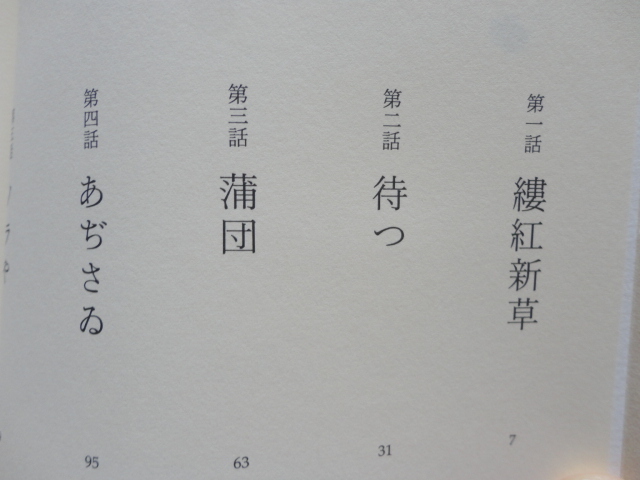 第一話 縷紅新草 7
第二話 待つ 31
第三話 蒲団 63
第四話 あぢさゐ 95